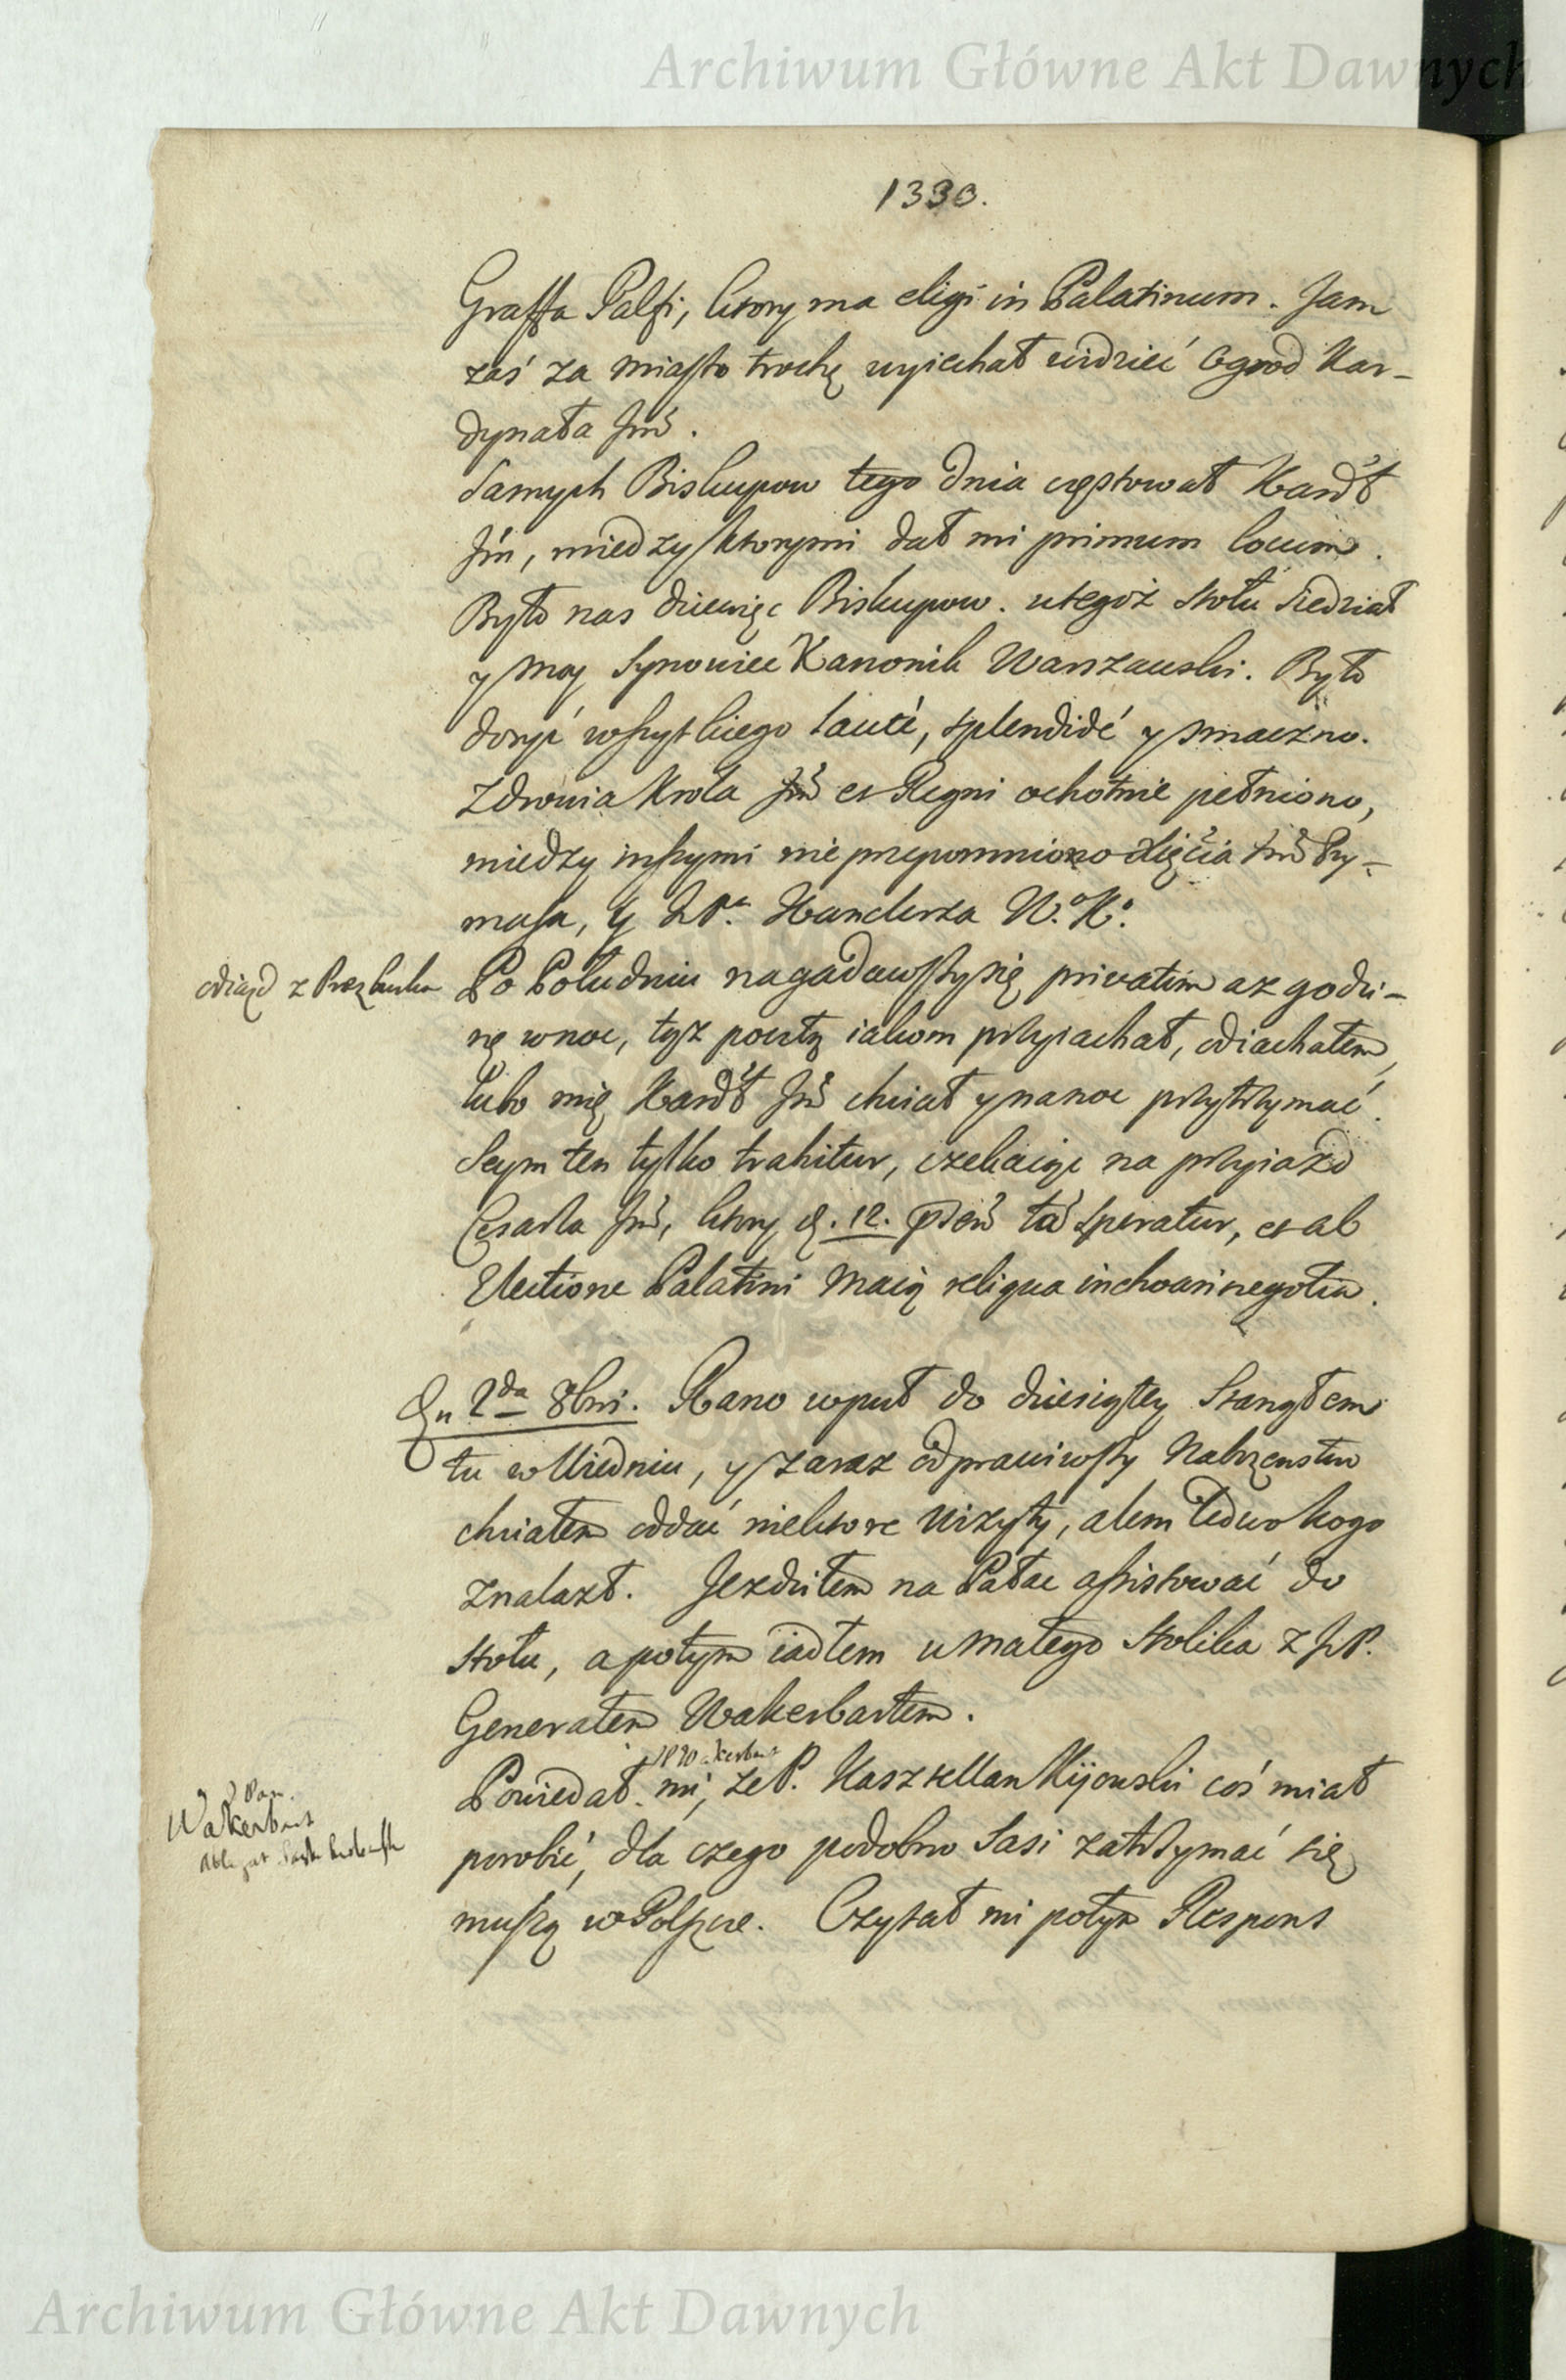 Archiwum Główne Akt Dawnych
1330.
Graffa Palfi, ktory ma eligi in Palatinum. Jam
zaś za miasto trochę wyiechał widzieć Ogrod Kar-
dynała Jm̃ci.
Samych Biskupow tego dnia częstował Kard̃ł
Jm̃, miedzy ktorymi dał mi primum locum.
Było nas dziewięc Biskupow. u tegoż stołu siedział
y moy Synowiec Kanonik Warszawski. Było
dosyć wszytkiego lautè, splendidè y smaczno.
Zdrowia Krola Jm̃ et Regni ochotnie pełniono,
miedzy inszymi nie przepomniono Xięcia Jm̃ Pry-
masa, y JP. Kanclerza W. K.
odiazd z Prezburka
Po Południu nagadawszy się privatim az godzi-
nę w noc, tyz pocztą iakom przyiachał, odiachałem,
lubo mię Kard̃ł Jm̃ chciał y na noc przytrzymać.
Seym ten tylko trahitur, czekaiąc na przyiazd
Cesarza Jm̃, ktory d. 12. praesen̄ ta̅ speratur, et ab
Electione Palatini maią reliqua inchoari negotia.
Dn 2da 8bris. Rano w puł do dziesiątey stanąłem
tu w Wiedniu, y zaraz odprawiwszy Nabożenstwo
chciałem oddać niektore wizyty, alem ledwo kogo
znalazł. Jezdziłem na Pałac assistować do
stołu, a potym iadłem u małego stolika z JP.
Generałem Wakerbartem.
Powiedał mi, ze P. Kasztellan Kijowski coś miał
porobić, dla czego podobno Sasi zatrzymać się
Wakerbart
muszą w Polszcze. Czytał mi potym Respons
Archiwum Główne Akt Dawnych